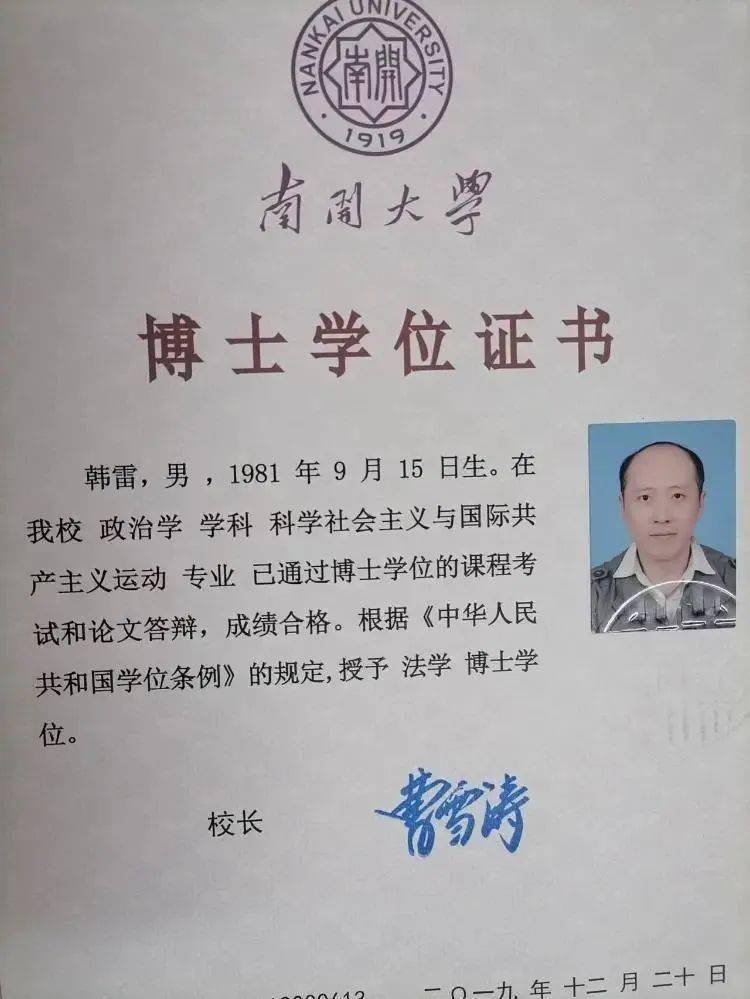 NANKAI UNIVERSITY
南開
· 1919 ·
南開大學
博士学位证书
韩雷，男 ，1981 年 9 月 15 日生。在
我校 政治学 学科 科学社会主义与国际共
产主义运动 专业 已通过博士学位的课程考
试和论文答辩，成绩合格。根据《中华人民
共和国学位条例》的规定,授予 法学 博士学
位。
校长 曹雪涛
二〇一九 年 十二 月 二十 日